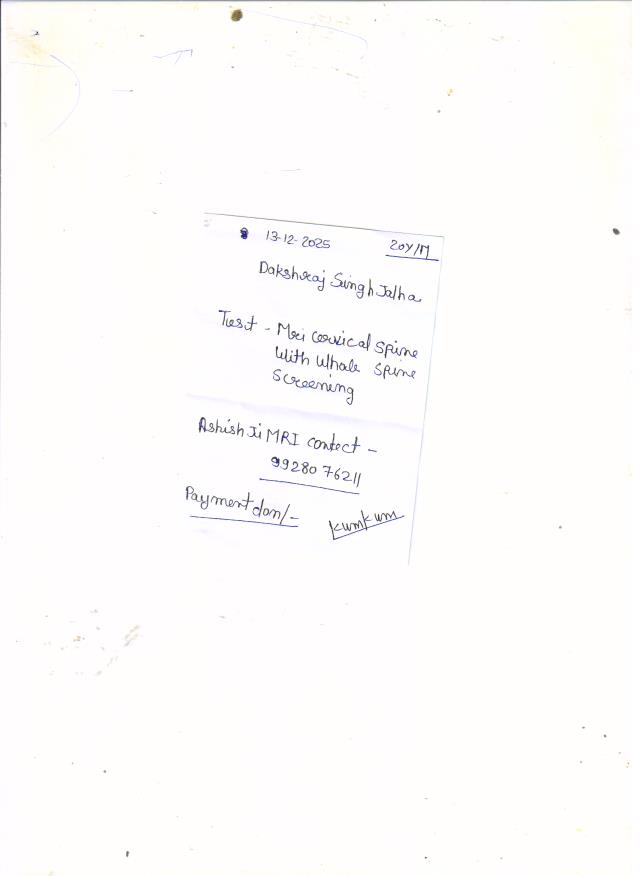 13-12-2025 20Y/M
Dakshraj Singh Jalha
Test - Mri cervical spine
With Whole spine
Screening
Ashish Ji MRI contect -
99280 76211
Payment don/-
Kumkum